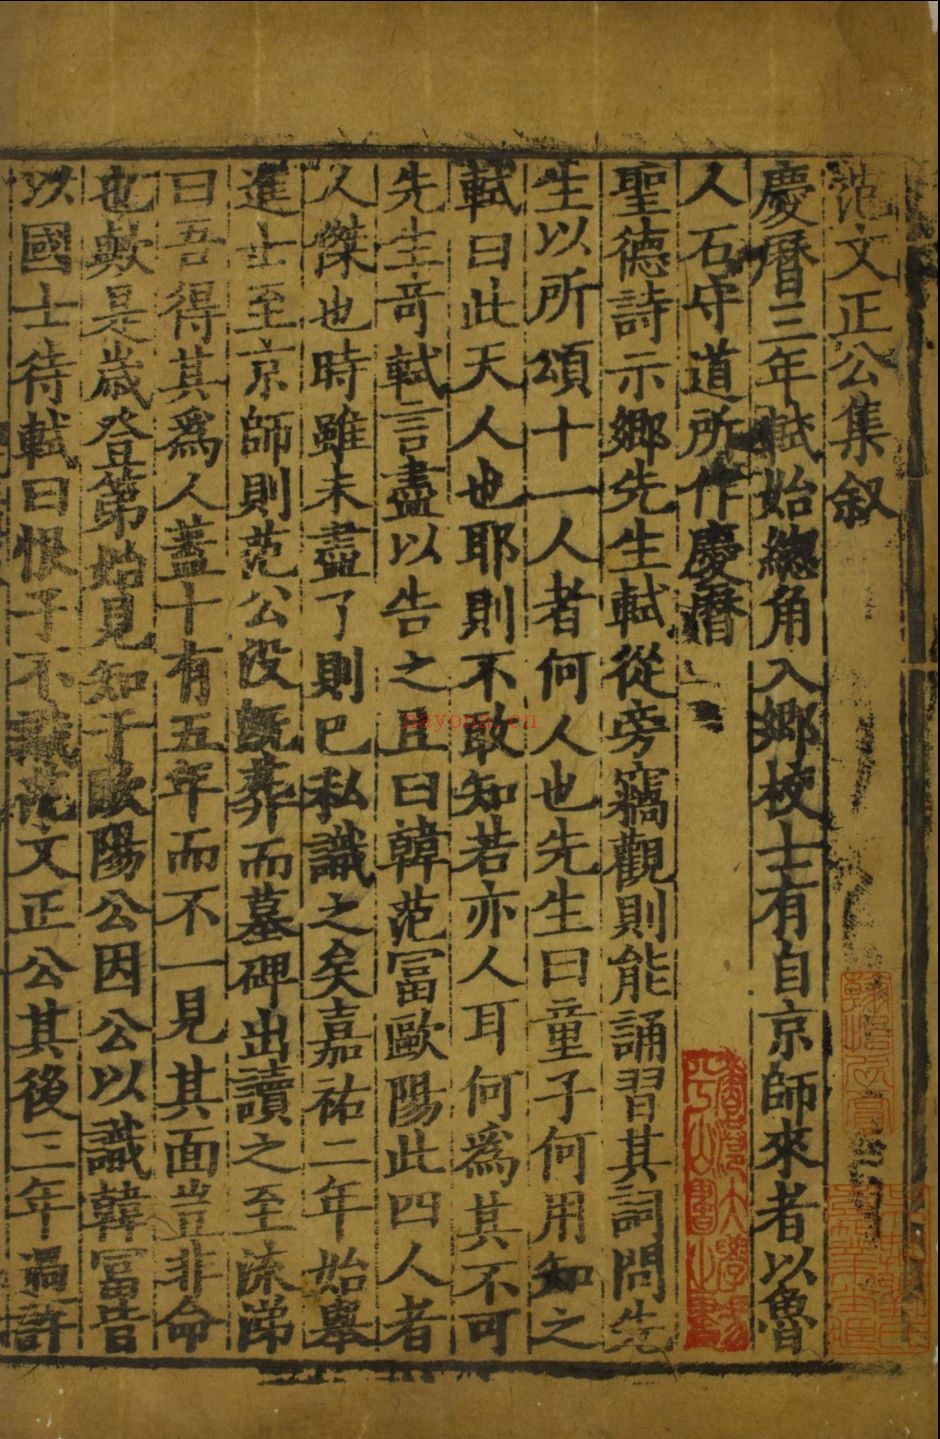 范文正公集叙
慶曆三年軾始總角入鄉校士有自京師來者以魯
人石守道所作慶曆
聖德詩示鄉先生軾從旁竊觀則能誦習其詞問先
生以所頌十一人者何人也先生曰童子何用知之
軾曰此天人也耶則不敢知若亦人耳何爲其不可
先生竒軾言盡以告之且曰韓范冨歐陽此四人者
人傑也時雖未盡了則已私識之矣嘉祐二年始舉
進士至京師則范公没既葬而墓碑出讀之至流涕
曰吾得其爲人蓋十有五年而不一見其面豈非命
也歟是歳登第始見知于歐陽公因公以識韓冨皆
以國士待軾曰恨子不識范文正公其後三年過許